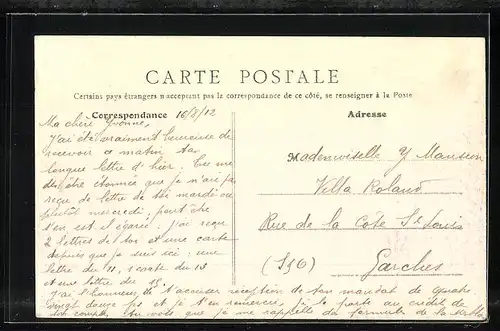 CARTE POSTALE
Certains pays étrangers n'acceptant pas la correspondance de ce côté, se renseigner à la Poste
Correspondance 16/8/12
Adresse
Ma chère Yvonne,
J'ai été vraiment heureuse de
recevoir ce matin ta
longue lettre d'hier. Tu me
dis être étonnée que je n'ai pas
reçu de lettre de toi mardi ou
plutôt mercredi; peut être
s'en est égarée. J'ai reçu
2 lettres de toi et une carte
depuis que je suis ici: une
lettre du 11, 1 carte du 13
et une lettre du 15.
J'ai l'honneur de t'accuser réception de ton mandat de quatre
vingt douze et je t'en remercie, je le porte au crédit de
ton compte. Tu vois que je me rappelle du formule de la
Mademoiselle Y Manseon
Villa Roland
Rue de la Côte St Louis
(S & O) Garches